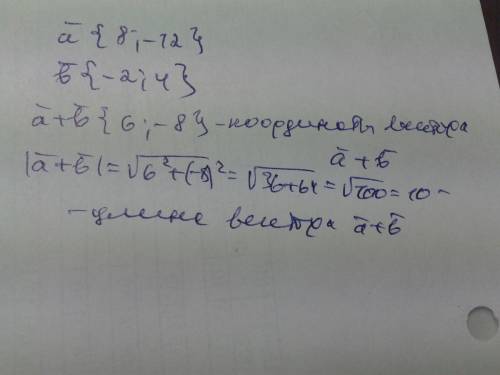 a̅ {8;-12}
b̅ {-2;4}
a̅+b̅ {6;-8} - координаты вектора
a̅+b̅
|a̅+b̅|=√6²+(-8)²=√36+64=√100=10 -
- длина вектора a̅+b̅